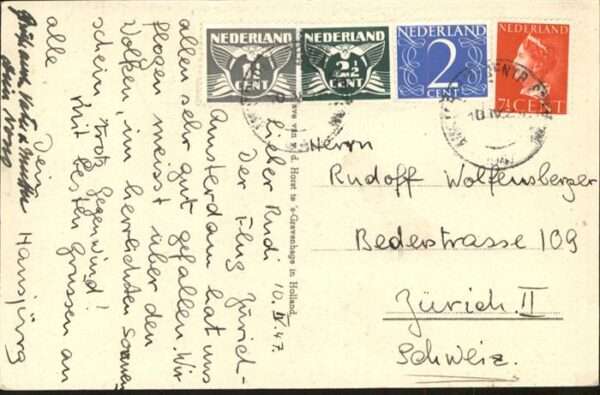 NEDERLAND
CENT
NEDERLAND
2½
CENT
NEDERLAND
2
CENT
NEDERLAND
7½ CENT
10. IV. 47.
Lieber Rudi
Der Flug Zürich-
Amsterdam hat uns
allen sehr gut gefallen. Wir
flogen meisst über den
Wolken, im herrlichsten Sonnen
schein, trotz Gegenwind!
Mit besten Grüssen an
alle
Dein
Hansjürg
Horst te 's-Gravenhage in Holland.
Herrn
Rudolf Wolfensberger
Bederstrasse 109
Zürich II
Schweiz.